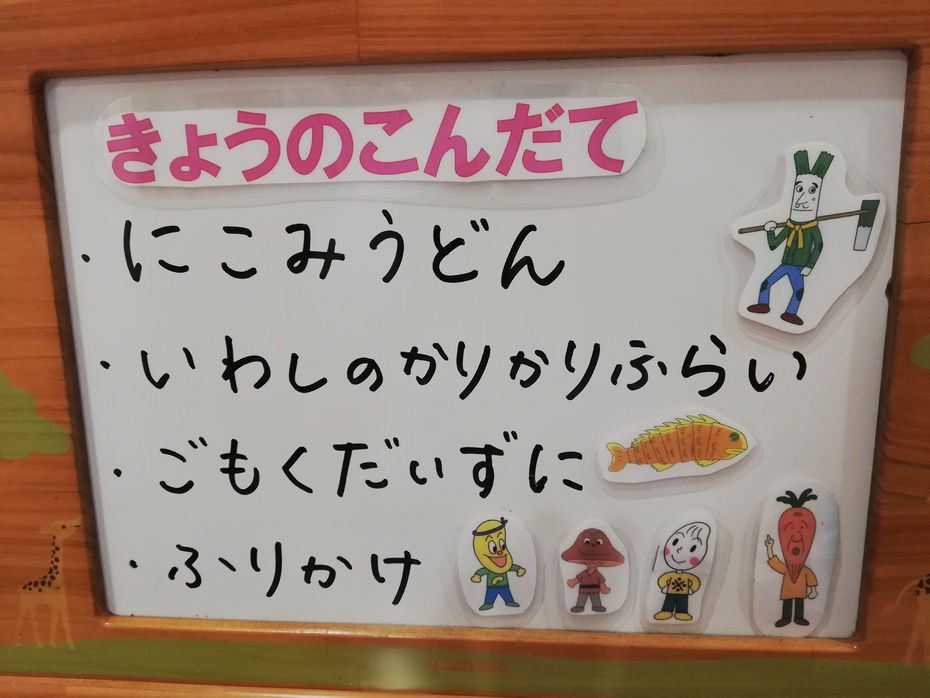 きょうのこんだて
・にこみうどん
・いわしのかりかりふらい
・ごもくだいずに
・ふりかけ